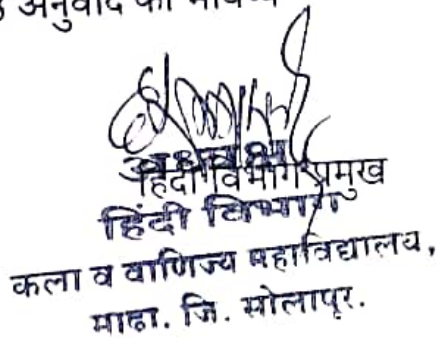 अनुवाद का
अध्यक्ष
हिंदी विभाग प्रमुख
हिंदी विभाग
कला व वाणिज्य महाविद्यालय,
माढा. जि. सोलापूर.